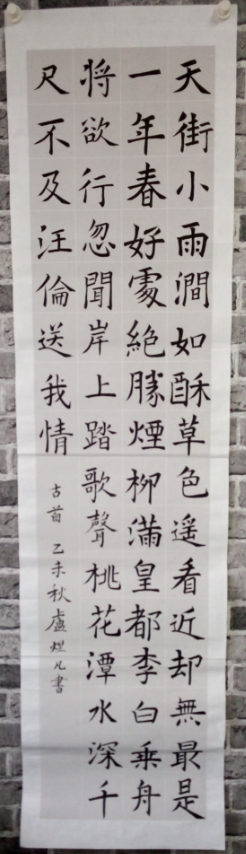 天街小雨澗如酥草色遥看近却無最是
一年春好處絶勝煙柳滿皇都李白乗舟
将欲行忽聞岸上踏歌聲桃花潭水深千
尺不及汪倫送我情
古首 乙未秋盧煜凡書